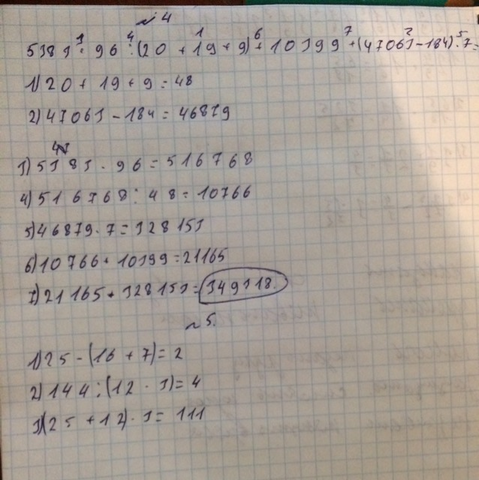 № 4
3 4 1 6 7 2 5
5383 · 96 : (20 + 19 + 9) + 10399 + (47063 - 184) · 7 =
1) 20 + 19 + 9 = 48
2) 47063 - 184 = 46879
3) 5383 · 96 = 516768
4) 516768 : 48 = 10766
5) 46879 · 7 = 328153
6) 10766 + 10399 = 21165
7) 21165 + 328153 = 349318.
№ 5.
1) 25 - (16 + 7) = 2
2) 144 : (12 · 3) = 4
3) (25 + 12) · 3 = 111